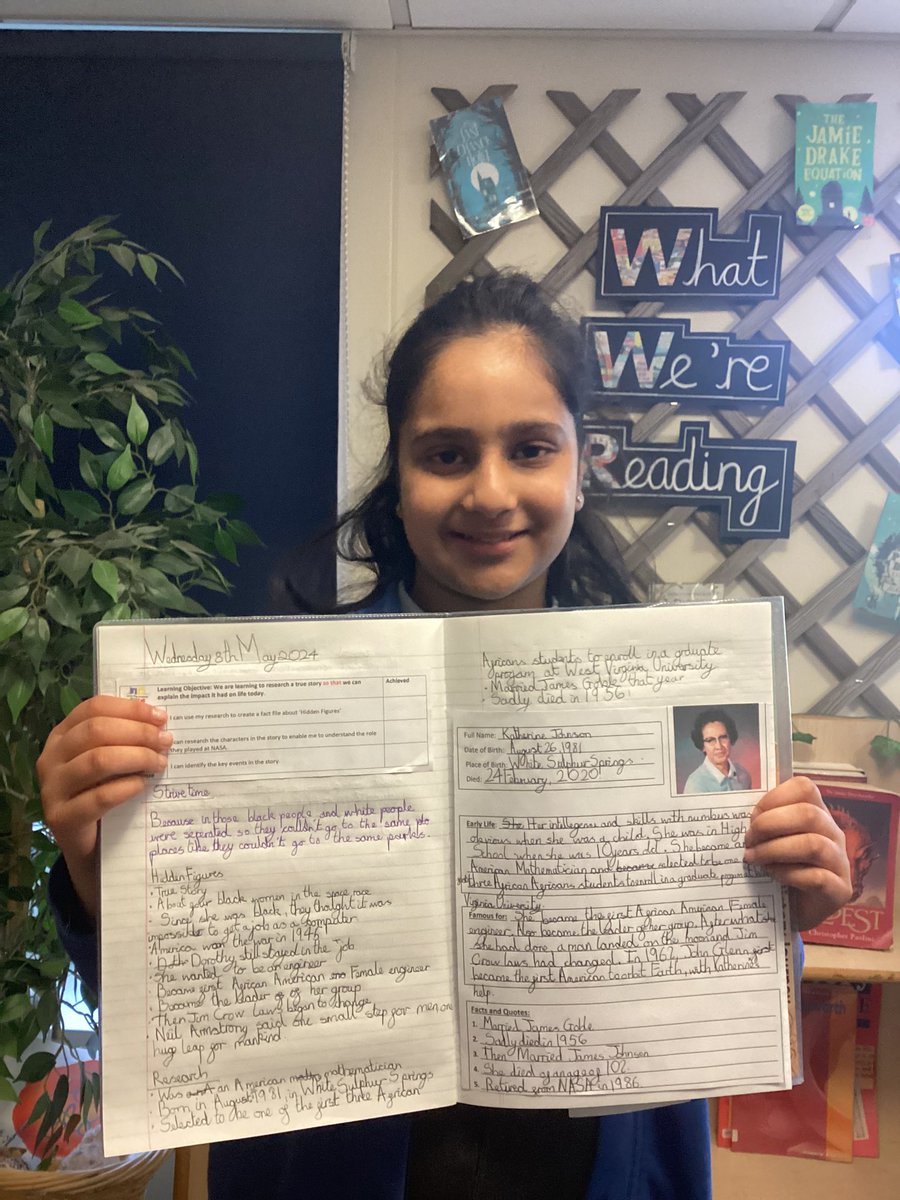 THE
JAMIE
DRAKE
EQUATION
What
We're
Reading
Wednesday 8th May 2024
Learning Objective: We are learning to research a true story so that we can
explain the impact it had on life today.
Achieved
I can use my research to create a fact file about 'Hidden Figures'
I can research the characters in the story to enable me to understand the role
they played at NASA.
I can identify the key events in the story.
Strive time
Because in those black people and white people
were seperated so they couldn't go to the same
places like they couldn't go to the same
Hidden Figures
• True Story
• About four black women in the space race
• Since she was black, they thought it was
impossible to get a job as a computer
• America won the war in 1945
• Both Dorothy still stayed in the job
• She wanted to be an engineer
• Became first African American Female engineer
• Became the leader of her group
• Then Jim Crow Laws began to change
• Neil Armstrong said one small step for men one
huge leap for mankind
Research
• Was an American mathematician
• Born in August 1981 in White Sulphur Springs
• Selected to be one of the first three African
Africans students to enroll in a graduate
program at West Virginia University
• Married James Goble that year
• Sadly died in 1956
Full Name: Katherine Johnson
Date of Birth: August 26, 1981
Place of Birth: White Sulphur Springs
Died: 24 February, 2020
Early Life: She Her intellegence and skills with numbers was
obvious when she was a child. She was in High
School when she was 10 years old. She became an
American Mathematician and became selected to be one of
three African Africans students to enroll in a graduate program at West
Virginia University
Famous for: She became the first African American Female
engineer. Nor became the leader of her group. After what she
had done, a man landed on the moon and Jim
Crow laws had changed. In 1962, John Glenn first
became the first American to orbit Earth, with Katherine's
help.
Facts and Quotes:
1. Married James Goble
2. Sadly died in 1956
3. Then Married James Johnson
4. She died of an age of 102
5. Retired from NASA in 1986.
Christopher Paolini